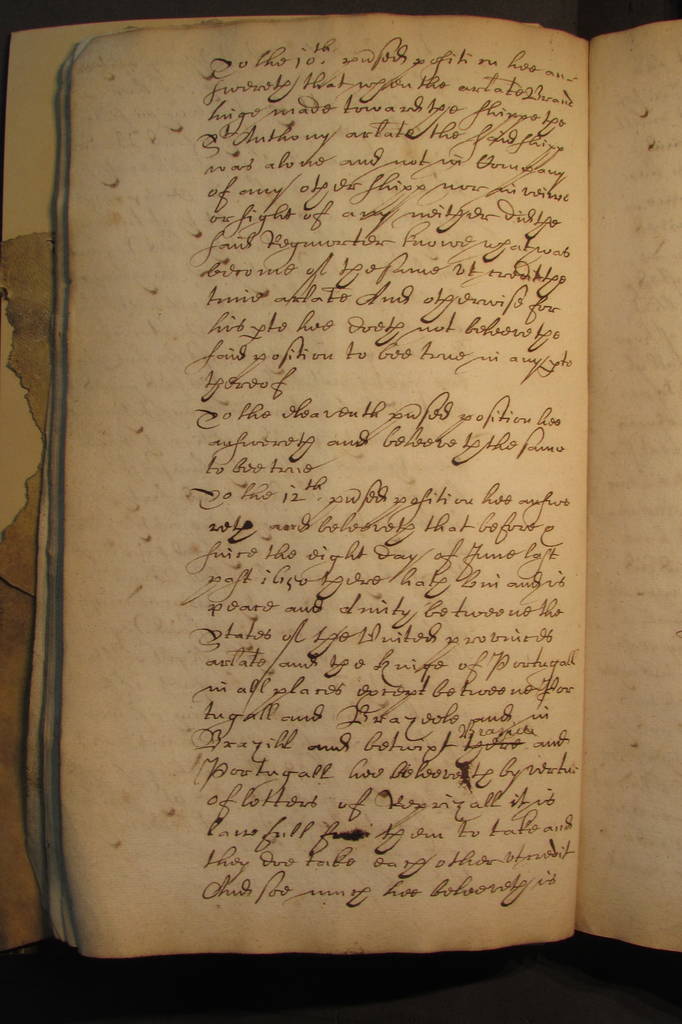 To the 10th. pr̃sed position hee an-
swereth that when the arlate Brand
luige made towards the shippe the
St Anthony arlate the said shipp
was alone and not in Company
of any other shipp nor in veiwe
or sight of any neither did the
said Regmorter knowe what was
become of the same vt credit the
time arlate And otherwise for
his pte hee doeth not beleeve the
said position to bee true in any pte
thereof
To the eleaventh pr̃sed position hee
answereth and beleeveth the same
to bee true
To the 12th. pr̃sed position hee answe
reth and beleeveth that before &
since the eight day of June last
past 1650 there hath bin and is
peace and Amity betweene the
States of the United provinces
arlate and the Kinge of Portugall
in all places except betweene Por
tugall and Brazeele and in
Brazill and betwixt there Brazill and
Portugall hee beleeveth by vertue
of letters of Reprizall it is
lawfull for them to take and
they doe take each other vt credit
And soe much hee beleeveth is